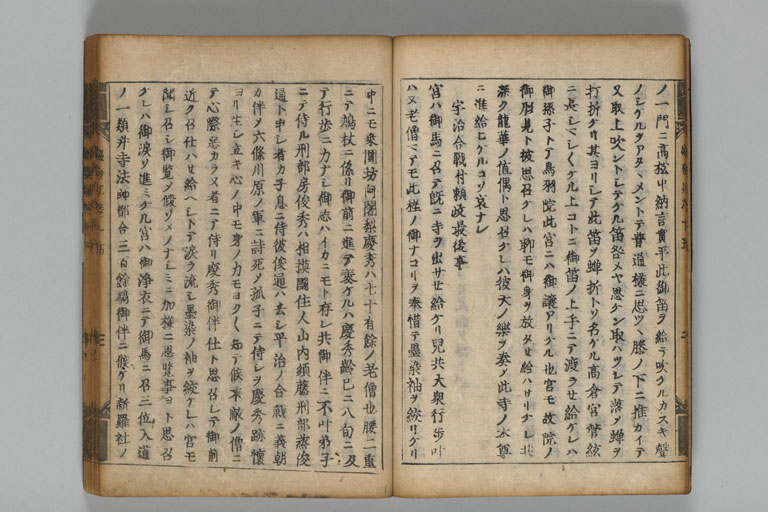 ノ一門ニ高松中納言實平此御笛ヲ給テ吹ケルカスキ聲
ノシケルヲアタヽメントテ普通樣ニ思ツヽ膝ノ下ニ推カイテ
又取上吹ントシテケル笛咎メヤ思ケン取ハツレテ落メ蝉ヲ
打折ケリ其ヨリシテ此笛ヲ蝉折トソ名ケル高倉宮管絃
ニ長シマシ〱ケル上コトニ御笛ノ上手ニテ渡ラセ給ケレハ
御孫子トテ鳥羽院此宮ニハ御讓アリケル也宮モ故院ノ
御形見ト被思召ケレハ聊モ御身ヲ放タセ給ハサリケレ共
深ク龍華ノ値偶ト思召ケレハ彼天ノ樂ヲ奏メ此寺ノ本尊
ニ進給ヒケルコソ哀ナレ
宇治合戰付頼政最後事
宮ハ御馬ニ召テ既ニ寺ヲ出サセ給ケリ兒共大衆行歩ニ叶
ハヌ老僧マテモ此程ノ御ナコリヲ奉惜テ墨染袖ヲ絞リケリ
中ニモ乗圓坊阿闍梨慶秀ハ七十有餘ノ老僧也腰二重
ニテ鳩杖ニ係リ御前ニ進テ奏ケルハ慶秀齢已ニ八旬ニ及
テ行歩ニ力ナシ御志ハイカニモト存レ共御伴ニ不叶弟子
ニテ侍ル刑部房俊秀ハ相摸國住人山内須藤刑部丞俊
通ト申シ者カ子息ニ侍彼俊通ハ去シ平治ノ合戰ニ義朝
カ伴ヲ六條川原ノ軍ニ討死ヲ孤子ニテ侍シヲ慶秀跡懷
ヨリ生シ立キ心ノ中モ身ノ力モヨク〱知テ候末敵ノ僧ニ
テ心際悪カラヌ者ニテ侍リ慶秀御伴仕ト思召レテ御前
近ク召仕ハセ給ヘシトテ涙ヲ流シ墨染ノ袖ヲ絞ケレハ宮モ
聞シ召シ御覽メ假リメノナシミニ加樣ニ思覧事ヨト思召
ケレハ御涙ソ進ミケル宮ハ御浄衣ニテ御馬ニ召三位入道
ノ一類并寺法師都合三百餘騎御伴ニ候ケリ新羅社ノ